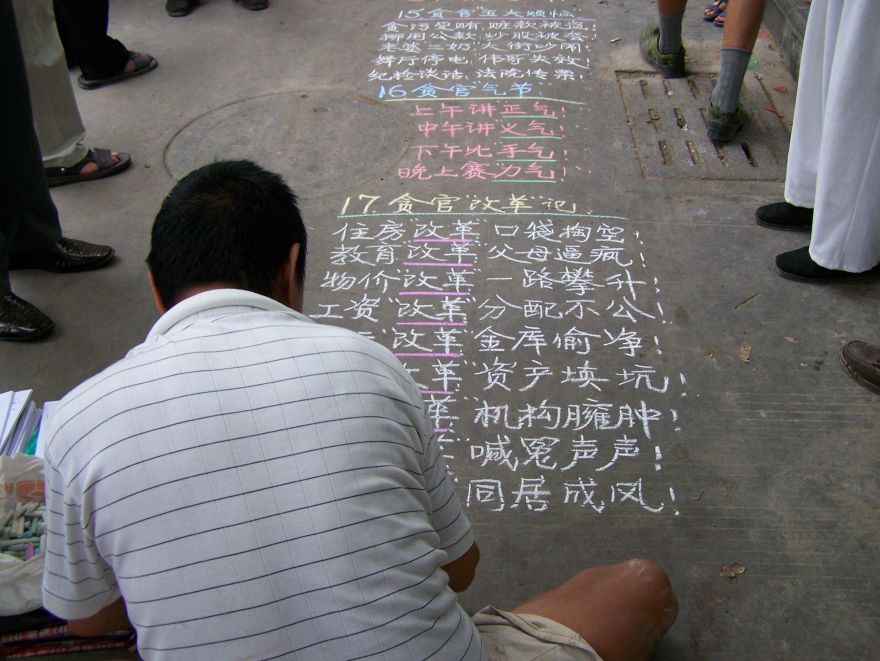 15 贪官"五大烦恼"
贪污受贿, 赃款被盗
挪用公款, 炒股被套
老婆二奶, 大街吵闹
舞厅停电, 伟哥失效
纪检谈话, 法院传票!
16 贪官气节
上午讲"正气"!
中午讲"义气"!
下午比"手气"!
晚上赛"力气"!
17. 贪官"改革"记
住房"改革" 口袋掏空!
教育"改革" 父母逼疯!
物价"改革" 一路攀升!
工资"改革" 分配不公!
改革" 金库偷净!
改革" 资产填坑!
革" 机构臃肿!
喊冤声声!
同居成风!